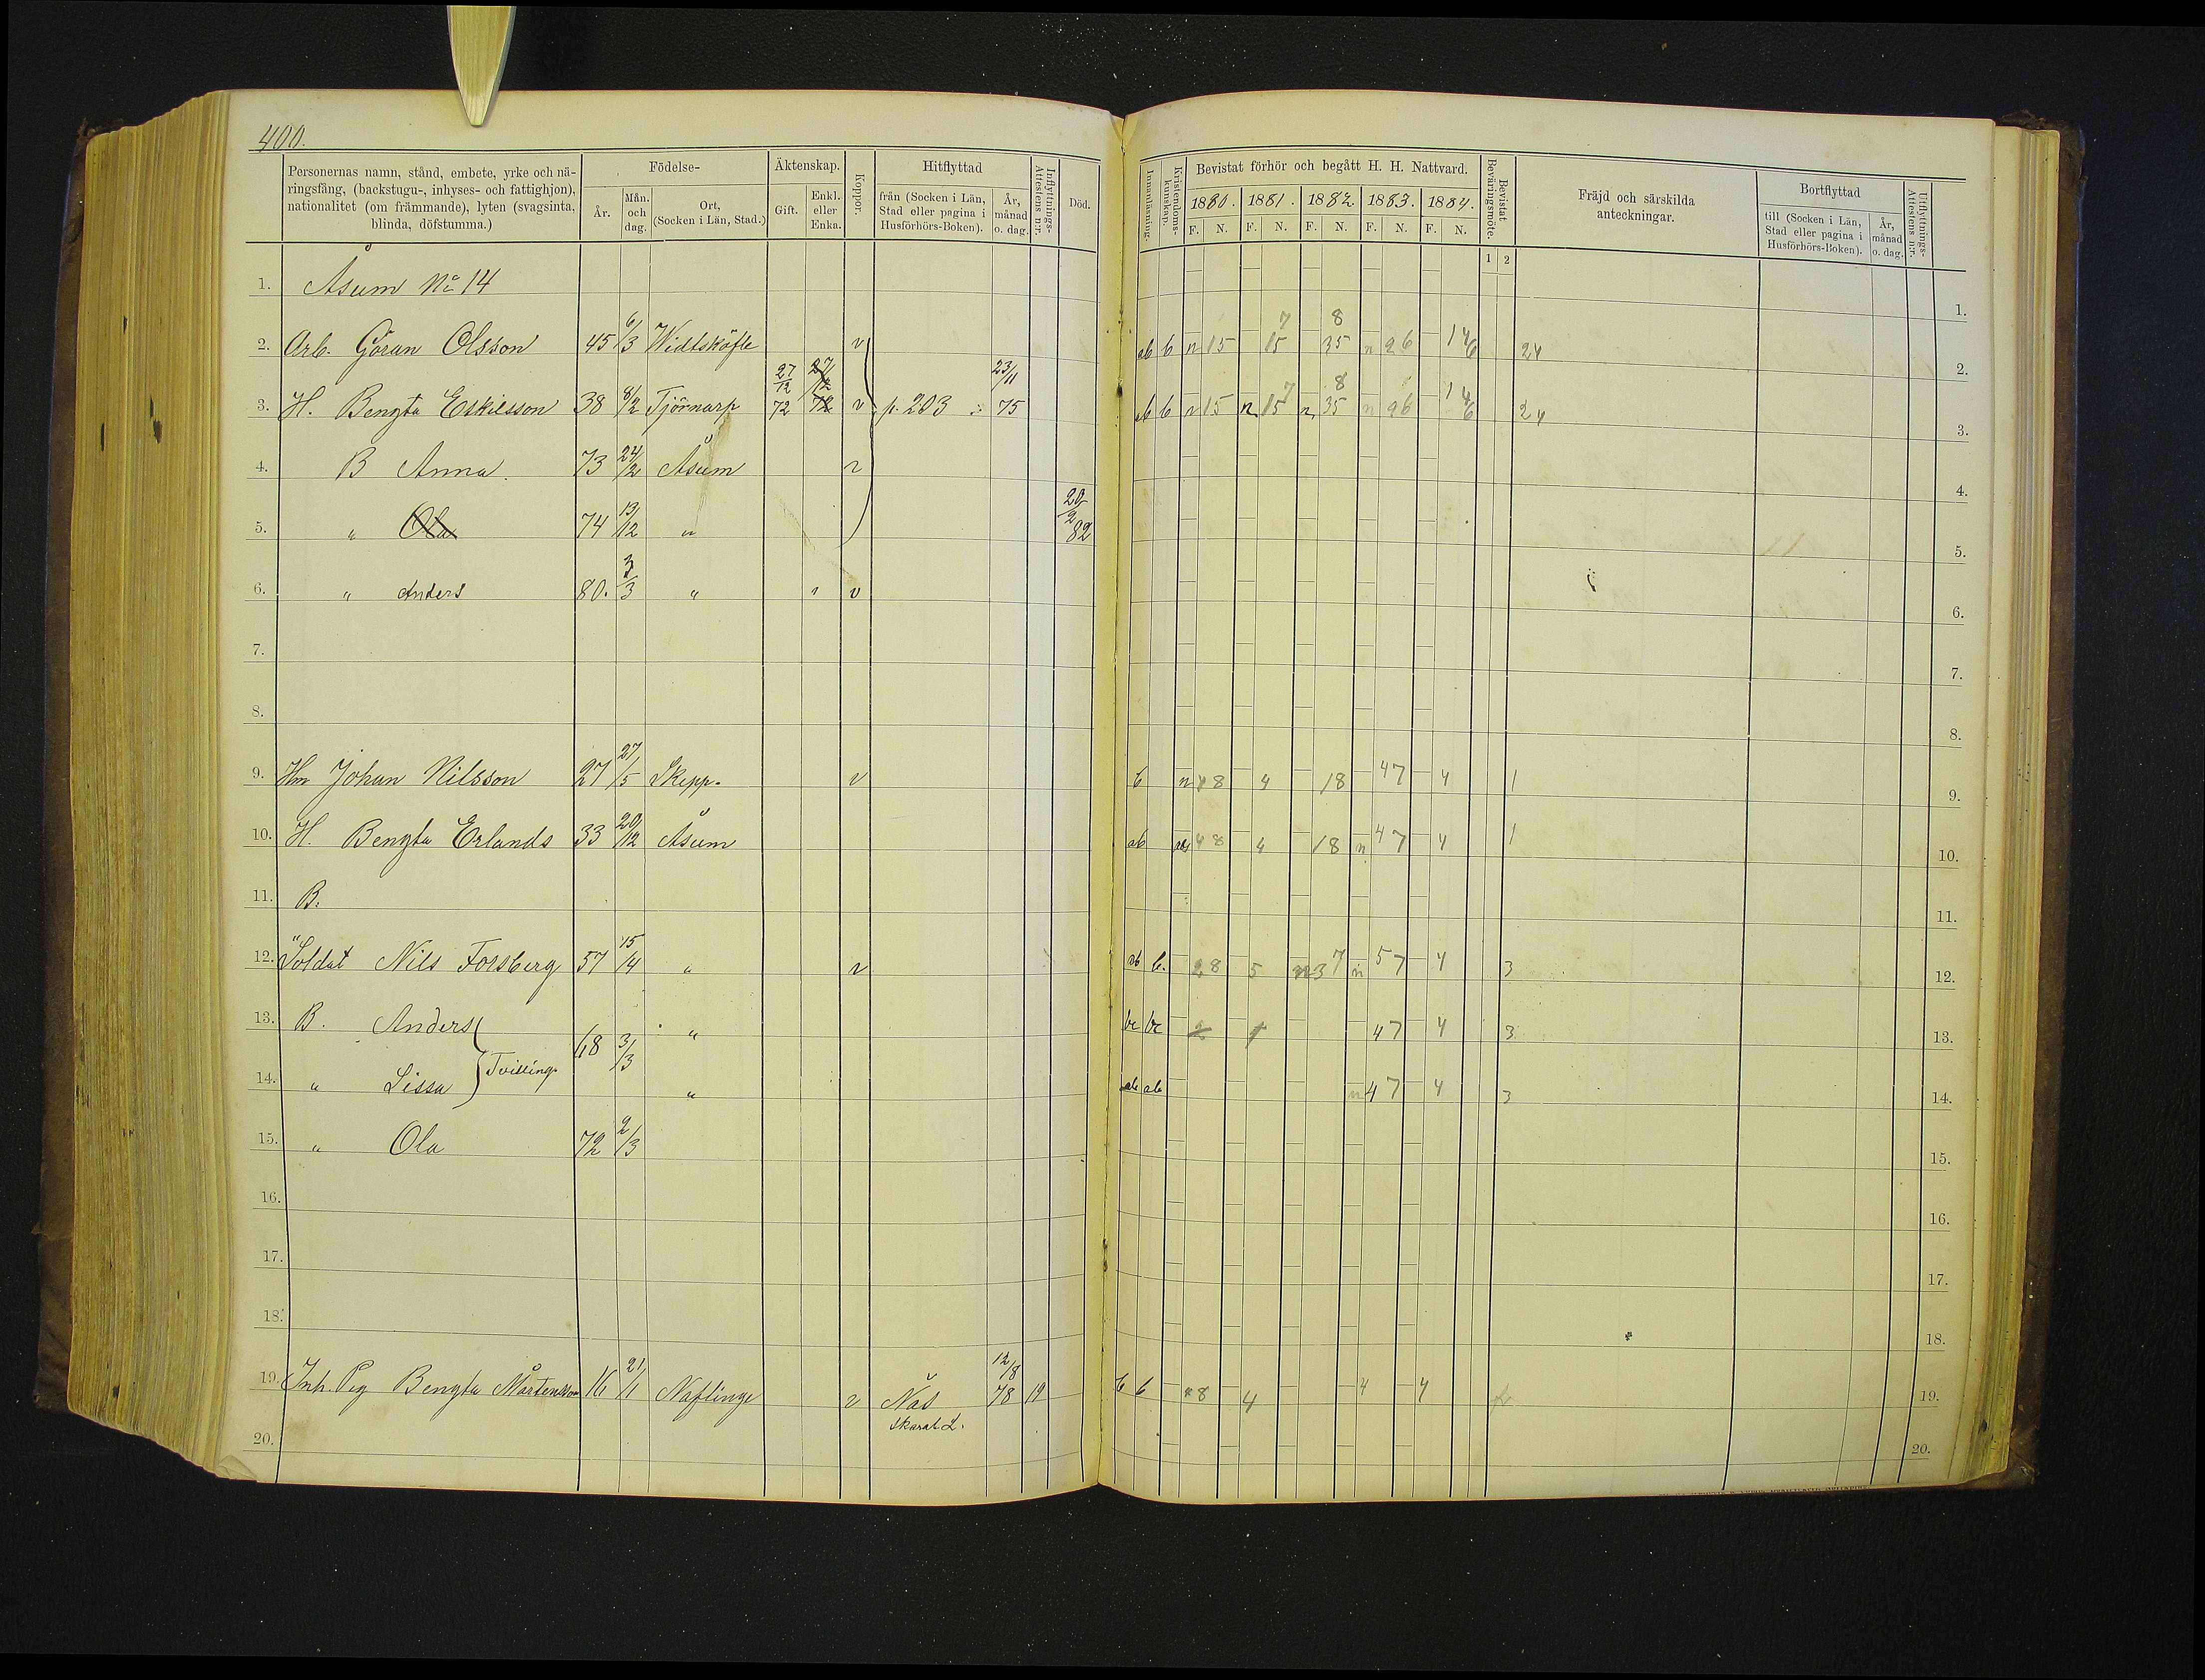 400.
Personernas namn, stånd, embete, yrke och nä-
ringsfång, (backstugu-, inhyses- och fattighjon),
nationalitet (om främmande), lyten (svagsinta,
blinda, döfstumma.)
Födelse-
År.
Mån.
och
dag.
Ort,
(Socken i Län, Stad.)
Äktenskap.
Gift.
Enkl.
eller
Enka.
Koppor.
Hitflyttad
från (Socken i Län,
Stad eller pagina i
Husförhörs-Boken).
År,
månad
o. dag.
Inflyttnings-
Attestens n:r.
Död.
1. Åsum No 14
2. Arb. Göran Olsson 45 6/3 Widtsköfle v
3. H. Bengta Eskilsson 38 8/2 Tjörnarp 27/12 72 27/12 72 v p. 203 23/11 75
4. B Anna. 73 24/2 Åsum v
5. " Ola 74 13/12 " 20/2 82
6. " Anders 80. 3/3 " v
7.
8.
9. Hm Johan Nilsson 27 27/5 Skepp. v
10. H. Bengta Erlands 33 20/12 Åsum
11. B.
12. Soldat Nils Forsberg 57 15/4 " v
13. B. Anders "
Tvilling. 68 3/3
14. " Lissa "
15. " Ola 72 2/3
16.
17.
18.
19. Inh. Pig Bengta Mårtensson 16 21/1 Näflinge v Näs 12/8 78 19
Skarab. L.
20.
Innanläsning.
Kristendoms-
kunskap.
Bevistat förhör och begått H. H. Nattvard.
1880. 1881. 1882. 1883. 1884.
F. N. F. N. F. N. F. N. F. N.
Bevistat
Beväringsmöte.
1 2
Fräjd och särskilda
anteckningar.
Bortflyttad
till (Socken i Län,
Stad eller pagina i
Husförhörs-Boken).
År,
månad
o. dag.
Utflyttnings-
Attestens n:r.
1.
ab b n 15 7 15 8 35 n 26 14/6 24 2.
ab b n 15 n 7 15 n 8 35 n 26 14/6 24 3.
4.
5.
6.
7.
8.
b n 48 4 18 47 4 1 9.
ab 48 4 18 n 47 4 1 10.
11.
ab b. 28 5 n 37 n 57 4 3 12.
bc bc 2 1 47 4 3 13.
ab ab n 47 4 3 14.
15.
16.
17.
18.
b b 8 4 4 4 19.
20.